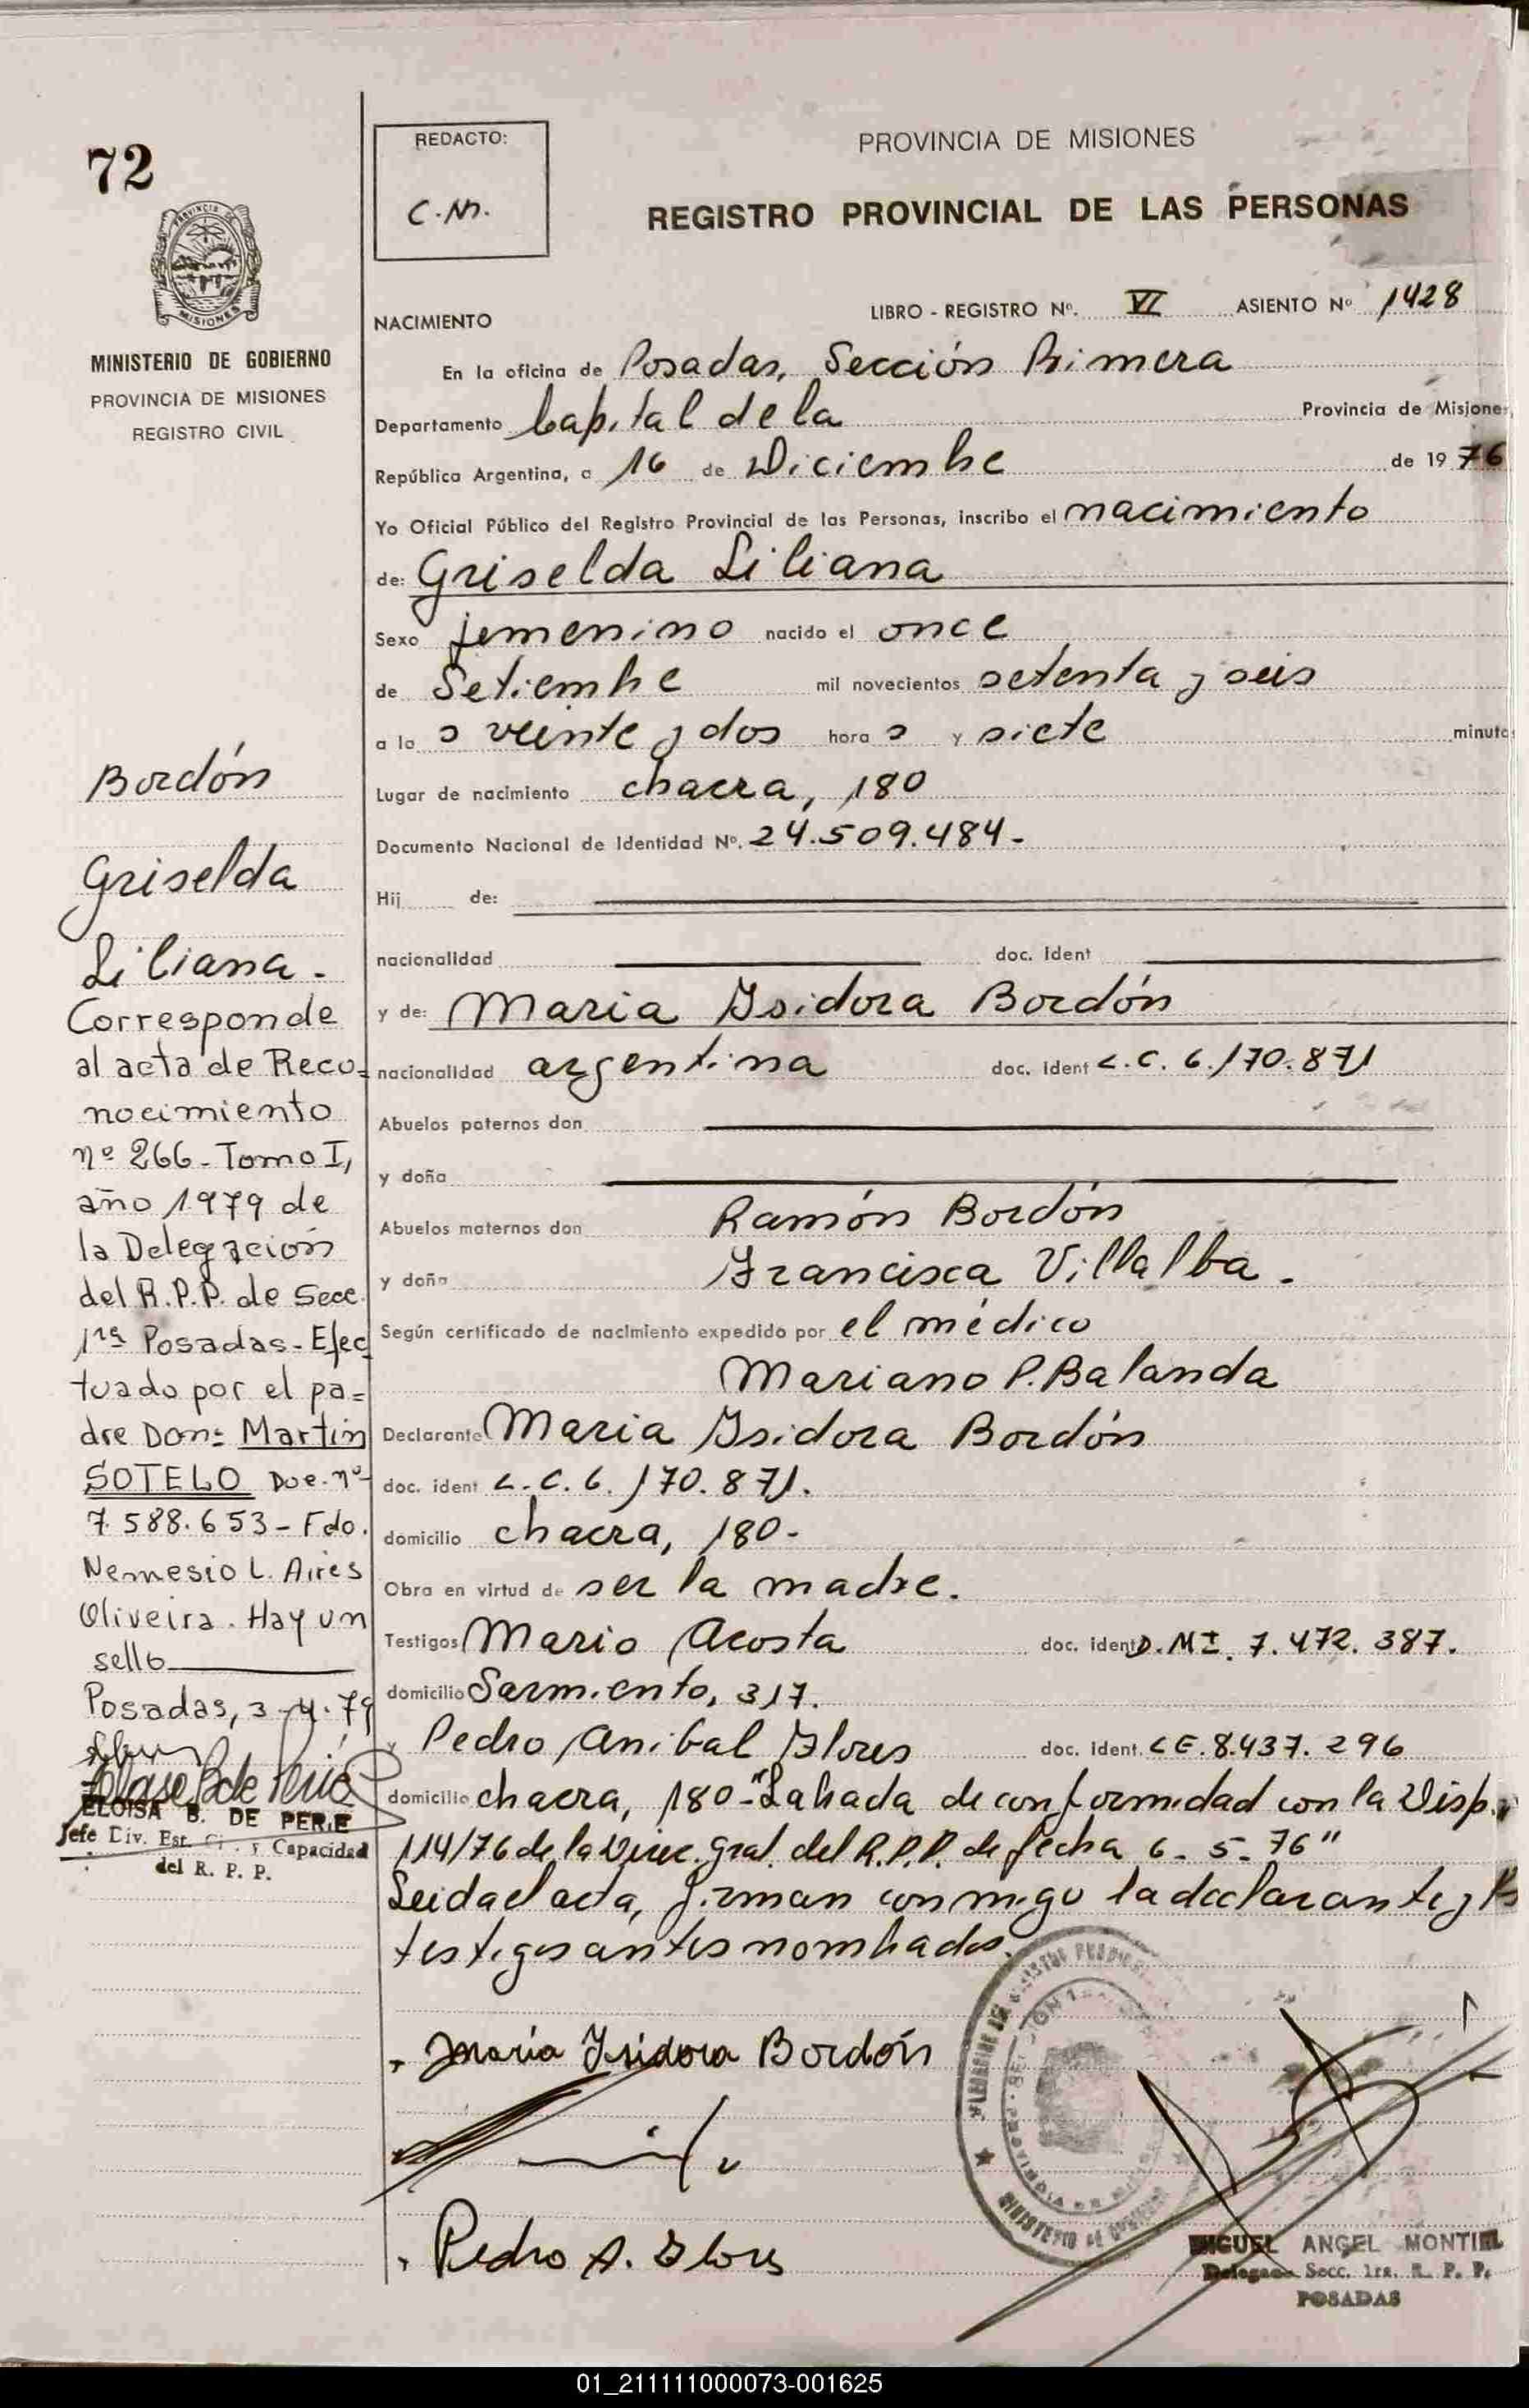 72
PROVINCIA DE
MISIONES
MINISTERIO DE GOBIERNO
PROVINCIA DE MISIONES
REGISTRO CIVIL
REDACTO:
C.M.
PROVINCIA DE MISIONES
REGISTRO PROVINCIAL DE LAS PERSONAS
NACIMIENTO
LIBRO - REGISTRO Nº. VI ASIENTO Nº 1428
En la oficina de Posadas, Sección Primera
Departamento Capital de la Provincia de Misiones,
República Argentina, a 16 de Diciembre de 1976
Yo Oficial Público del Registro Provincial de las Personas, inscribo el nacimiento
de: Griselda Liliana
Sexo femenino nacido el once
de Setiembre mil novecientos setenta y seis
a las veinte y dos horas y siete minuto
Lugar de nacimiento chacra, 180
Documento Nacional de Identidad Nº. 24.509.484-
Hij de:
nacionalidad doc. ident
y de: Maria Isidora Bordón
nacionalidad argentina doc. ident L.C. 6.170.871
Abuelos paternos don
y doña
Abuelos maternos don Ramón Bordón
y doña Francisca Villalba.
Según certificado de nacimiento expedido por el médico
Mariano P. Balanda
Declarante Maria Isidora Bordón
doc. ident L.C. 6.170.871.
domicilio chacra, 180-
Obra en virtud de ser la madre.
Testigos Mario Acosta doc. ident D.M.I. 7.472.387.
domicilio Sarmiento, 317.
y Pedro Anibal Flores doc. ident. L.E. 8.437.296
domicilio chacra, 180-"Labrada de conformidad con la Disp.
114/76 de la Direc. Gral. del R.P.P. de fecha 6-5-76"
Leida el acta, firman conmigo la declarante y los
testigos antes nombrados.
Maria Isidora Bordón
Pedro A. Flores
MIGUEL ANGEL MONTIEL
Delegado Secc. 1ra. R. P. P.
POSADAS
Bordón
Griselda
Liliana.
Corresponde
al acta de Reco=
nocimiento
nº 266-Tomo I,
año 1979 de
la Delegación
del R.P.P. de Secc.
1ra Posadas-Efec
tuado por el pa=
dre Don: Martin
SOTELO Doc. nº
7.588.653-Fdo.
Nemesio L. Aires
Oliveira. Hay un
sello
Posadas, 3-4-79
ELOISA B. DE PERIE
Jefe Div. Est. Ci. y Capacidad
del R. P. P.
01_211111000073-001625